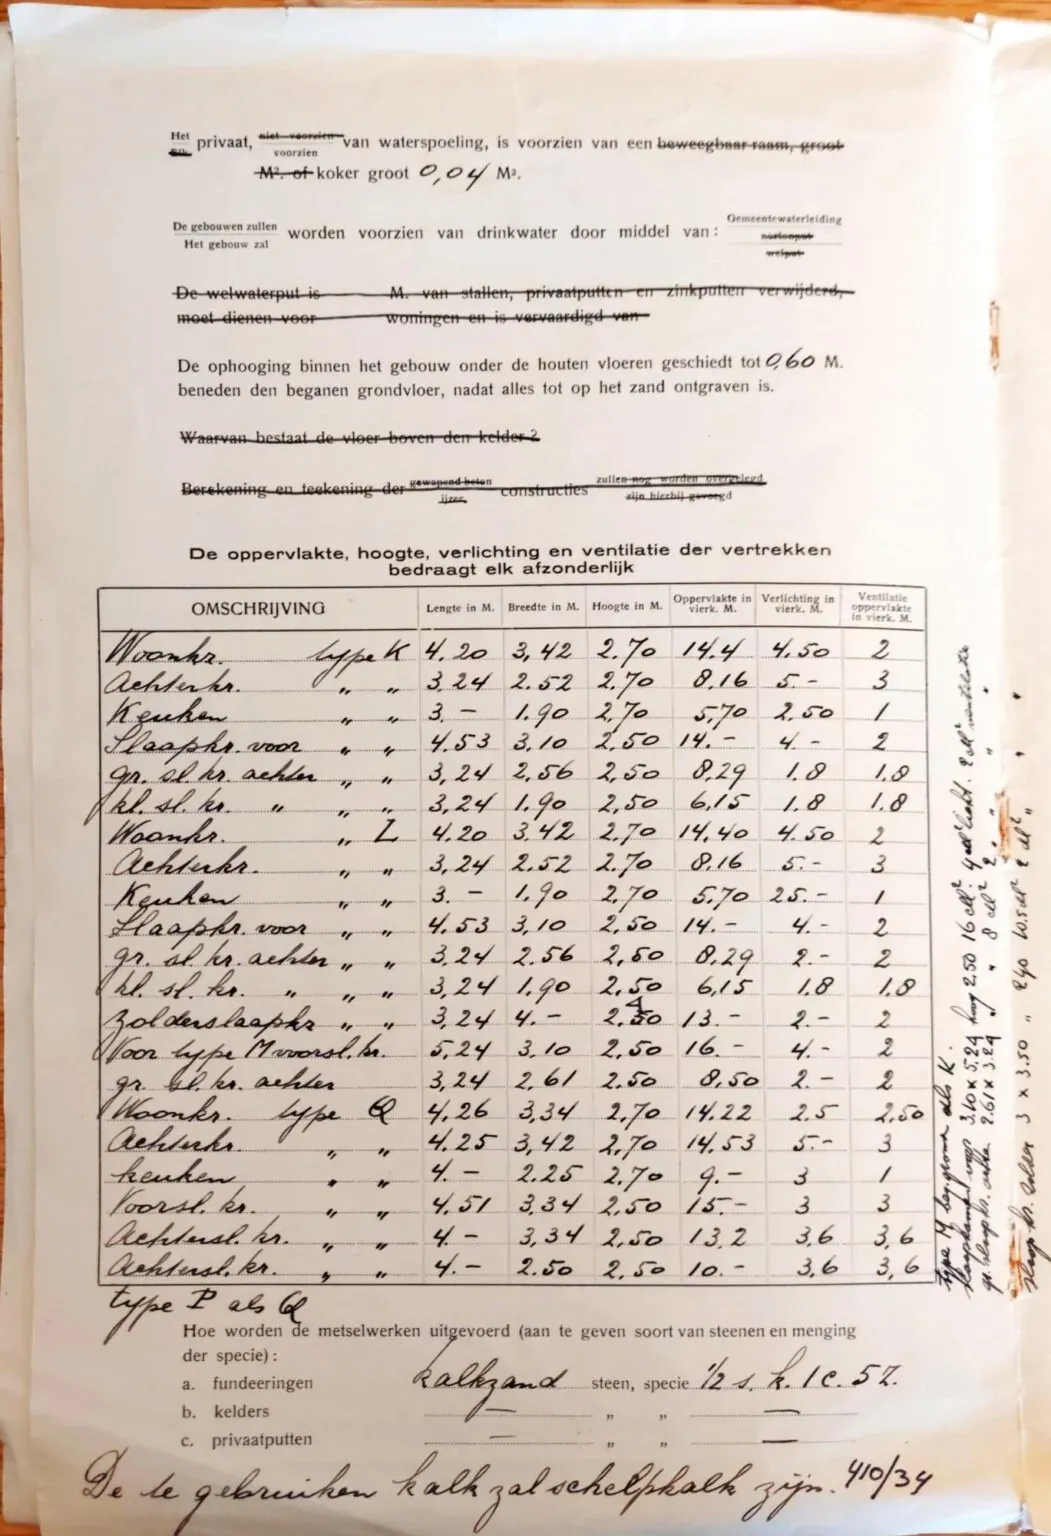 Het / Elk privaat, niet voorzien / voorzien van waterspoeling, is voorzien van een beweegbaar raam, groot
M². of koker groot 0,04 M².
De gebouwen zullen / Het gebouw zal worden voorzien van drinkwater door middel van: Gemeentewaterleiding
nortonput
welput
De welwaterput is M. van stallen, privaatputten en zinkputten verwijderd,
moet dienen voor woningen en is vervaardigd van
De ophooging binnen het gebouw onder de houten vloeren geschiedt tot 0,60 M.
beneden den beganen grondvloer, nadat alles tot op het zand ontgraven is.
Waarvan bestaat de vloer boven den kelder?
Berekening en teekening der gewapend beton / ijzer, constructies zullen nog worden overgelegd / zijn hierbij gevoegd
De oppervlakte, hoogte, verlichting en ventilatie der vertrekken
bedraagt elk afzonderlijk
OMSCHRIJVING Lengte in M. Breedte in M. Hoogte in M. Oppervlakte in vierk. M. Verlichting in vierk. M. Ventilatie oppervlakte in vierk. M.
Woonkr. type K 4.20 3,42 2.70 14.4 4.50 2
Achterkr. " " 3.24 2.52 2.70 8.16 5.- 3
Keuken " " 3.- 1.90 2,70 5,70 2.50 1
Slaapkr. voor " " 4.53 3.10 2,50 14.- 4.- 2
gr. sl. kr. achter " " 3,24 2,56 2,50 8,29 1.8 1.8
kl. sl. kr. " " " 3,24 1.90 2,50 6,15 1.8 1.8
Woonkr. " L 4.20 3.42 2.70 14.40 4.50 2
Achterkr. " " 3,24 2.52 2.70 8.16 5.- 3
Keuken " " 3.- 1.90 2,70 5.70 25.- 1
Slaapkr. voor " " 4.53 3,10 2,50 14.- 4.- 2
gr. sl. kr. achter " " 3,24 2.56 2,50 8,29 2.- 2
kl. sl. kr. " " " 3,24 1,90 2,50 6,15 1,8 1,8
Zolderslaapkr " " 3,24 4.- 13.- 2.- 2
Voor type M voorsl. kr. 5,24 3.10 2,50 16.- 4.- 2
gr. sl. kr. achter 3,24 2,61 2.50 8,50 2.- 2
Woonkr. type Q 4,26 3,34 2,70 14.22 2.5 2,50
Achterkr. " " 4.25 3,42 2,70 14.53 5.- 3
keuken " " 4.- 2.25 2.70 9.- 3 1
Voorsl. kr. " " 4,51 3,34 2,50 15.- 3 3
Achtersl. kr. " " 4.- 3,34 2,50 13.2 3,6 3,6
Achtersl. kr. " " 4.- 2.50 2,50 10.- 3,6 3,6
type P als Q
Hoe worden de metselwerken uitgevoerd (aan te geven soort van steenen en menging
der specie):
a. fundeeringen kalkzand steen, specie ½ s. k. 1 c. 5 Z.
b. kelders — " " —
c. privaatputten — " " —
De te gebruiken kalk zal schelpkalk zijn. 410/34
type M beg. grond als K.
3.10 x 5.24 hoog 2.50 16 M² 4 M² licht. 2 M² ventilatie
gr. slaapkr. achter 2.61 x 3.24 " " 8 M² 2 " " "
slaap kr. zolder 3 x 3.50 " 2,40 10.5 M² 2 M² " "